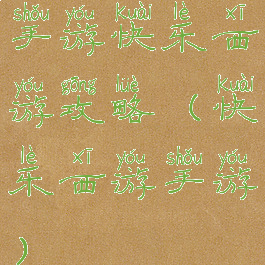 shǒu yóu kuài lè xī
手游快乐西
yóu gōng lüè kuài
游攻略(快
lè xī yóu shǒu yóu
乐西游手游
)